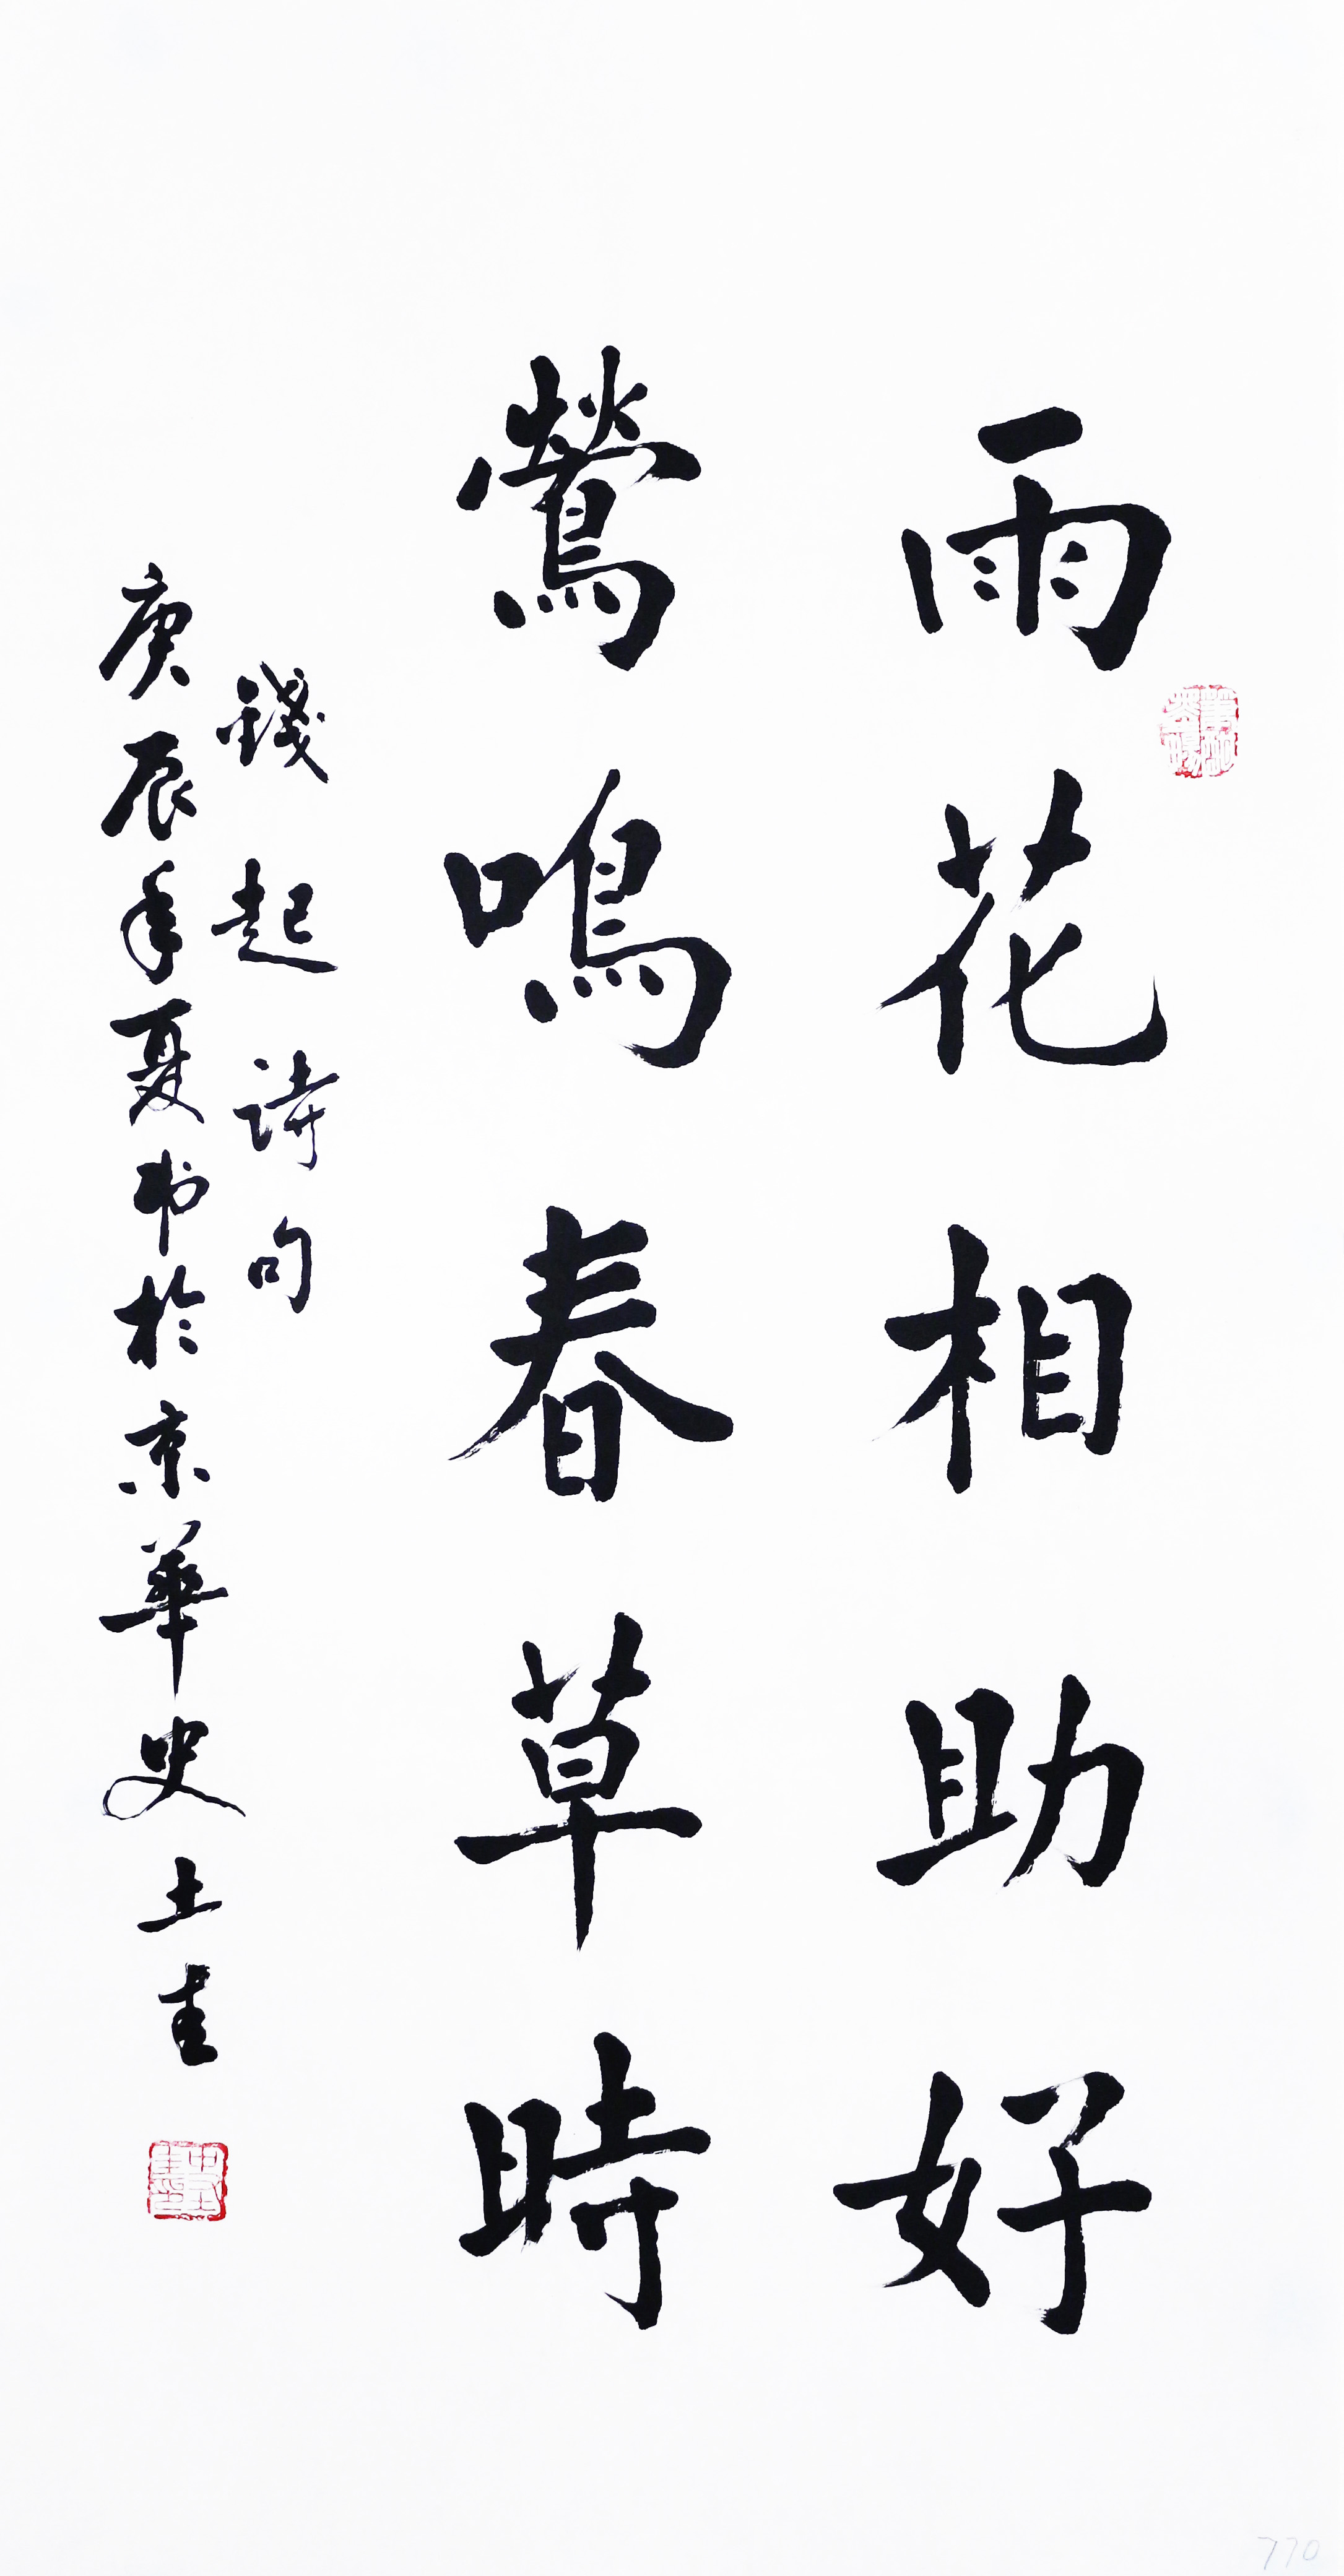 雨花相助好
鶯鳴春草時
錢起詩句
庚辰年夏书於京華史士圭
770